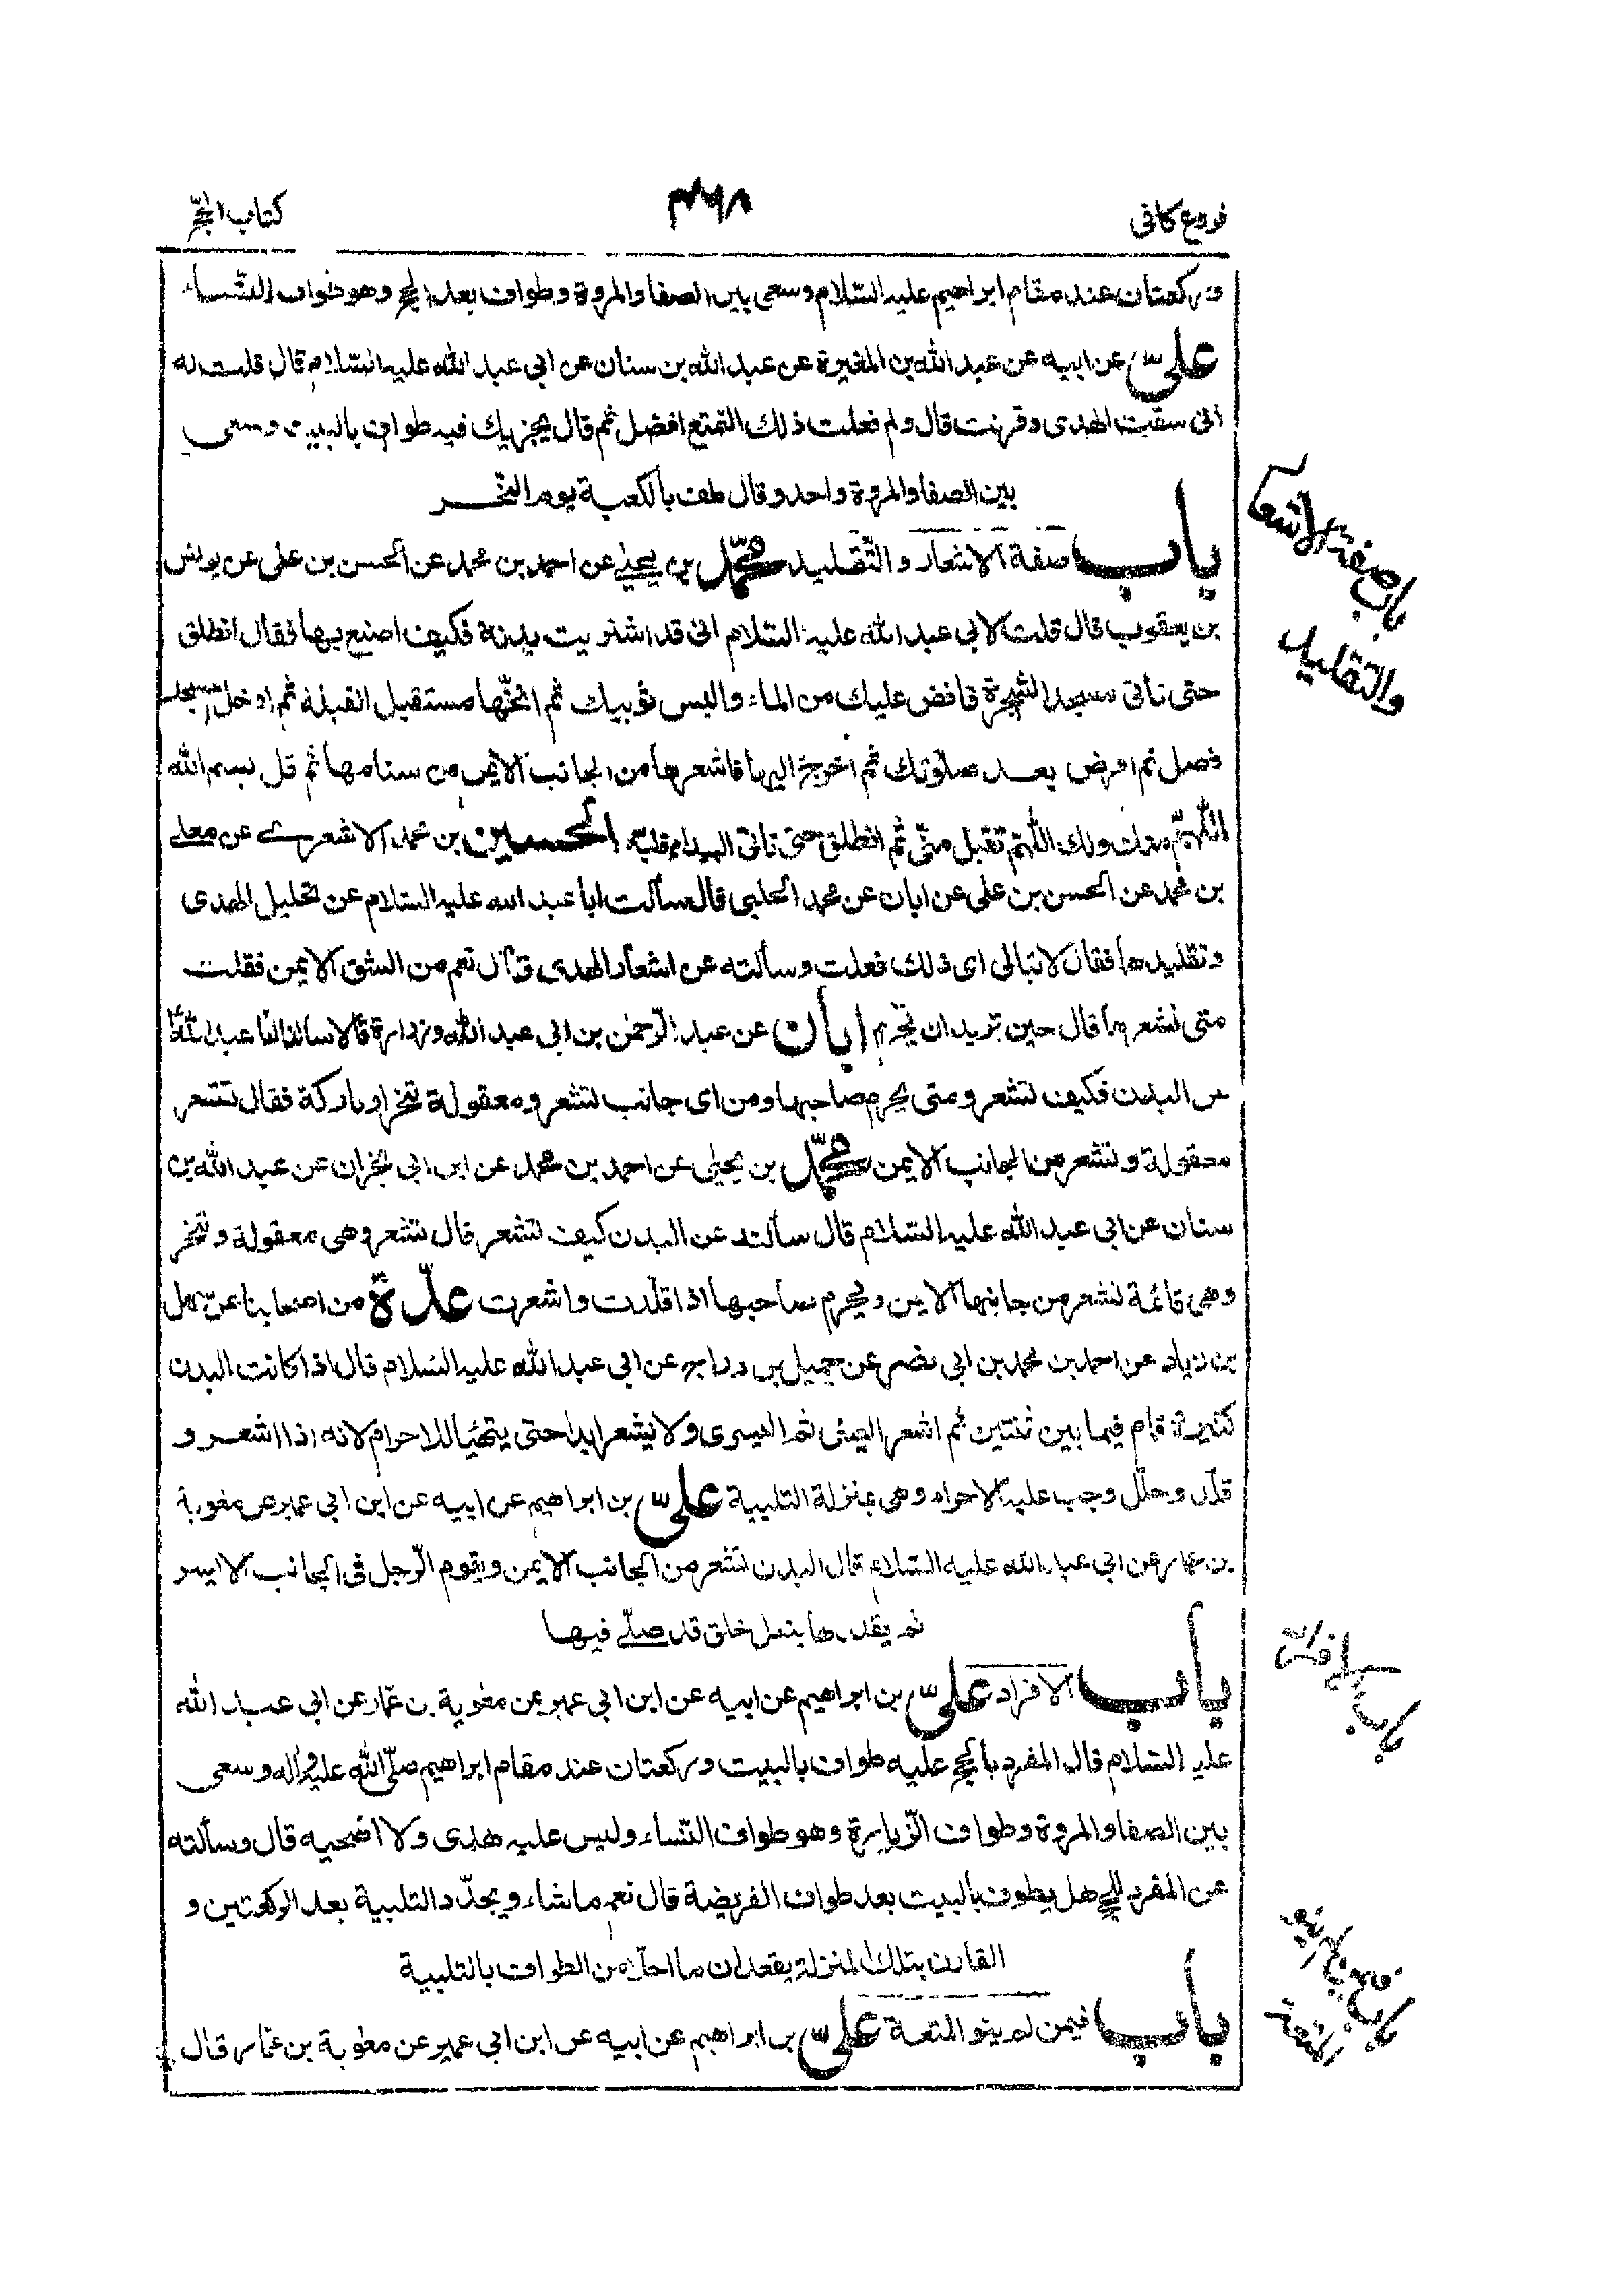 فروع كافى
كتاب الحجّ
وركعتان عند مقام ابراهيم عليه السّلام وسعى بين الصفا والمروة وطواف بعد الحج وهو طواف النّساء
علىّ عن ابيه عن عبد الله بن المغيرة عن عبد الله بن سنان عن ابى عبد الله عليه السّلام قال قلت له
انى سقت الهدى وقرنت قال ولم فعلت ذلك التمتع افضل ثم قال يجزيك فيه طواف بالبيت وسعى
بين الصفا والمروة واحد وقال طف بالكعبة يوم النّحر
باب صفة الاشعار والتّقليد محمّد بن يحيى عن احمد بن محمد عن الحسن بن على عن يونس
بن يعقوب قال قلت لابى عبد الله عليه السّلام انى قد اشتريت بدنة فكيف اصنع بها فقال انطلق
حتى تاتى مسجد الشجرة فافض عليك من الماء والبس ثوبيك ثم انخها مستقبل القبلة ثم ادخل المسجد
فصل ثم افرض بعد صلوتك ثم اخرج اليها فاشعرها من الجانب الايمن من سنامها ثم قل بسم الله
اللّهمّ منك ولك اللّهمّ تقبل منّى ثم انطلق حتى تاتى البيداء فلبّه الحسين بن محمد الاشعرى عن معلى
بن محمد عن الحسن بن على عن ابان عن محمد الحلبى قال سألت ابا عبد الله عليه السّلام عن تجليل الهدى
وتقليدها فقال لا تبالى اى ذلك فعلت وسألته عن اشعار الهدى قال نعم من الشق الايمن فقلت
متى نشعرها قال حين تريد ان تحرم ابان عن عبد الرّحمن بن ابى عبد الله وزرارة قالا سالنا ابا عبد الله
عن البدن فكيف تشعر ومتى يحرم صاحبها ومن اى جانب تشعر ومعقولة تنحر او باركة فقال تشعر
معقولة وتشعر من الجانب الايمن محمّد بن يحيى عن احمد بن محمد عن ابن ابى نجران عن عبد الله بن
سنان عن ابى عبد الله عليه السّلام قال سألته عن البدن كيف تشعر قال تشعر وهى معقولة وتنحر
وهى قائمة تشعر من جانبها الايمن ويحرم صاحبها اذا قلّدت واشعرت عدّة من اصحابنا عن سهل
بن زياد عن احمد بن محمد بن ابى نصر عن جميل بن دراج عن ابى عبد الله عليه السّلام قال اذا كانت البدن
كثيرة قام فيما بين ثنتين ثم اشعر اليمنى ثم اليسرى ولا يشعر ابدا حتى يتهيّا للاحرام لانه اذا اشعر و
قلّد وجلّل وجب عليه الاحرام وهى بمنزلة التلبية علىّ بن ابراهيم عن ابيه عن ابن ابى عمير عن معوية
بن عمار عن ابى عبد الله عليه السّلام قال البدن تشعر من الجانب الايمن ويقوم الرّجل فى الجانب الايسر
ثم يقلدها بنعل خلق قد صلّى فيها
باب الافراد علىّ بن ابراهيم عن ابيه عن ابن ابى عمير عن معوية بن عمّار عن ابى عبد الله
عليه السّلام قال المفرد بالحج عليه طواف بالبيت وركعتان عند مقام ابراهيم صلّى الله عليه وآله وسعى
بين الصفا والمروة وطواف الزّيارة وهو طواف النّساء وليس عليه هدى ولا اضحيه قال وسألته
عن المفرد للحج هل يطوف بالبيت بعد طواف الفريضة قال نعم ما شاء ويجدّد التلبية بعد الركعتين و
القارن بتلك المنزلة يعقدان ما احلا من الطواف بالتلبية
باب فيمن لم ينو المتعة علىّ بن ابراهيم عن ابيه عن ابن ابى عمير عن معوية بن عمّار قال
باب صفة الاشعار
والتقليد
باب الافراد
باب فيمن لم ينو
المتعة